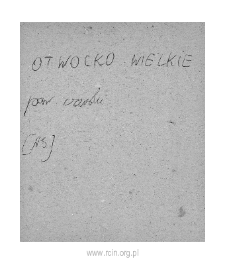 OTWOCKO WIELKIE
pow.
[AS]
www.rcin.org.pl